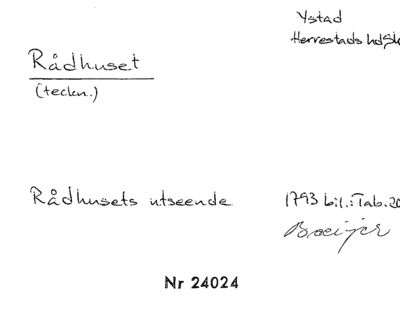 Ystad
Herrestads hd
Rådhuset
(teckn.)
Rådhusets utseende
1793 bil.: Tab. 20
Nr 24024